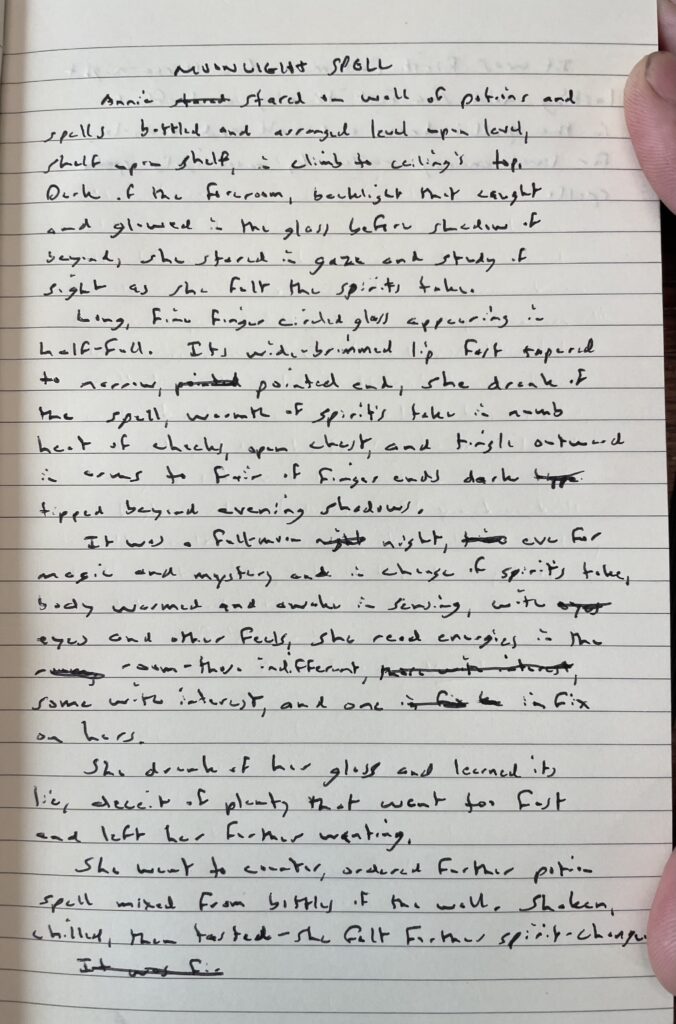 MOONLIGHT SPELL
Annie stared stared on wall of potions and
spells bottled and arranged level upon level,
shelf upon shelf, in climb to ceiling's top.
Dark of the foreroom, backlight that caught
and glowed in the glass before shadow of
beyond, she stared in gaze and study of
sight as she felt the spirits take.
Long, fine finger circled glass appearing in
half-full. Its wide-brimmed lip fast tapered
to narrow, pointed pointed end, she drank of
the spell, warmth of spirit's take in numb
heat of cheeks, open chest, and tingle outward
in arms to fair of finger ends dark tippe
tipped beyond evening shadows.
It was a full-moon night night, eve for
magic and mystery and in change of spirit's take,
body warmed and awake in sensing, with eyes
eyes and other feels, she read energies in the
room-those indifferent, more with interest,
some with interest, and one in fix in fix
on hers.
She drank of her glass and learned its
lie, deceit of plenty that went too fast
and left her further wanting.
She went to counter, ordered further potion
spell mixed from bottles of the wall. Shaken,
chilled, then tasted-she felt further spirit-change.
It was fix